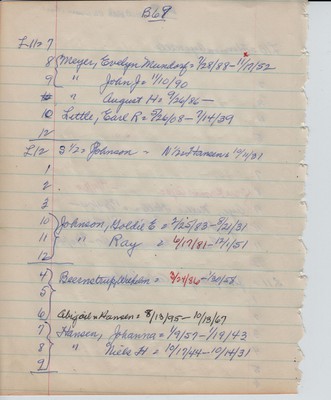 B69
L11 7
8 Meyer, Evelyn Mundorf = 3/28/88 - 11/7/52
9 " John J = 1/10/90
10 " August H = 9/26/86 -
10 Little, Earl R = 9/26/08 - 7/14/39
12
L12 S 1/2 = Johnson - N 1/2 = Hansen =
1
2
3
10 Johnson, Goldie E = 2/25/83 - 9/21/31
11 " Ray = 6/17/81 - 12/1/51
12
4 Beernstrup, = 3/24/86 - 1/20/58
5
6 Abigail = Hansen = 8/13/95 - 10/13/67
7 Hansen, Johanna = 1/9/57 - 1/19/43
8 " Niels H = 10/17/44 - 10/14/31
9